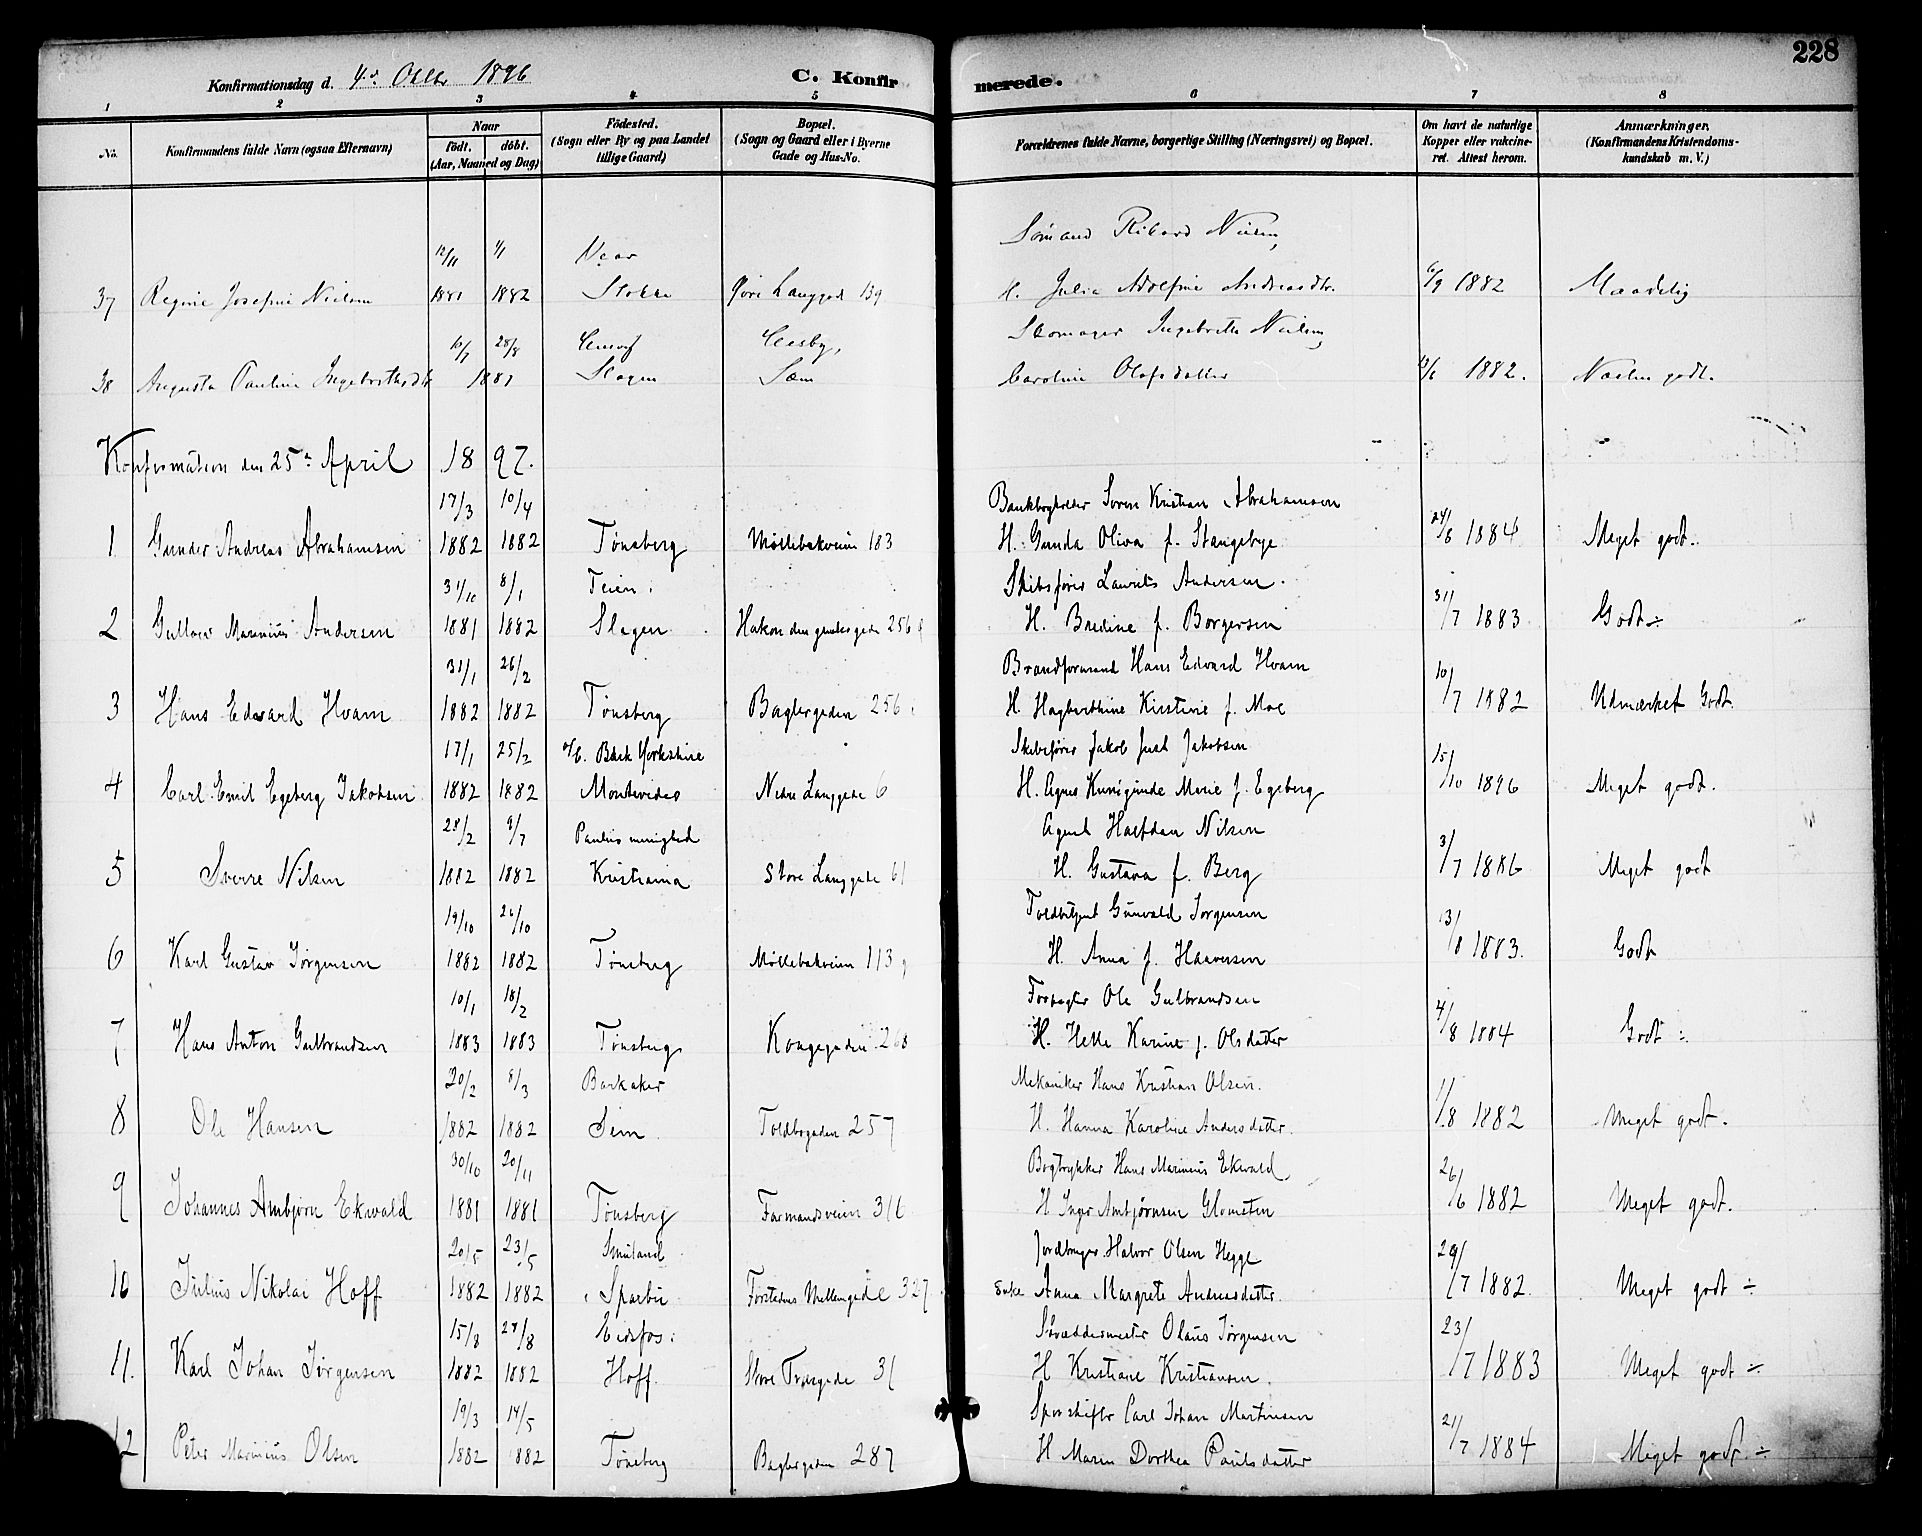 228
Konfirmationsdag d. 4de Oktbr 1896
C. Konfirmerede.
1 2 3 4 5 6 7 8
No.
Konfirmandens fulde Navn (ogsaa Efternavn)
Naar
födt. döbt.
(Aar, Maaned og Dag)
Födested.
(Sogn eller By og paa Landet
tillige Gaard)
Bopæl.
(Sogn og Gaard eller i Byerne
Gade og Hus-No.
Forældrenes fulde Navne, borgerlige Stilling (Næringsvei) og Bopæl.
Om havt de naturlige
Kopper eller vakcine-
ret. Attest herom.
Anmærkninger.
(Konfirmandens Kristendoms-
kundskab m. V.)
12/11 1/1 Sömand Rikard Nielsen,
37 Regine Josefine Nielsen 1881 1882 Stokke Langgade 139 H. Julia Adolfine Andreasdtr. 6/9 1882 Maadelig
10/7 28/8 Skomager Ingebreth Nielsen
38 Augusta Pauline Ingebrethsdtr 1881 Slagen Sem Caroline Olafsdatter 13/6 1882. Næsten godt.
Konfirmation den 25de April 1897.
17/3 10/4 Bankbogholder Søren Kristian Abrahamsen
1 Gunder Andreas Abrahamsen 1882 1882 Tønsberg Møllebakveien 183 H. Gunda Oliva f. Stangebye 24/6 1884 Meget godt.
31/10 8/1 Teien. Skibsfører Laurits Andersen.
2 Marinius Andersen 1881 1882 Slagen Hakon den gamlesgade 256 H. Bredine f. Borgersen 31/7 1883 Godt ÷
31/1 26/2 Brandformand Hans Edvard Hvam
3 Hans Edvard Hvam 1882 1882 Tønsberg Baglergaden 256 H. Hagbarthine Kirstine f. Moe 10/7 1882 Udmærket Godt
17/1 25/2 Bark Yorkshire Skibsfører Jakob Just Jakobsen
4 Carl Emil Egeberg Jakobsen 1882 1882 Montevideo Nedre Langgade 6 H. Agnes Kunigunde Marie f. Egeberg 15/10 1896 Meget godt.
28/2 9/7 Paulus menighed Agent Halfdan Nilsen
5 Sverre Nilsen 1882 1882 Kristiania Store Langgade 61 H. Gustava f. Berg 3/7 1886 Meget godt
19/10 26/10 Toldbetjent Gunvald Jørgensen
6 Karl Gustav Jørgensen 1882 1882 Tønsberg Møllebakveien 113 H. Anna f. Haaversen 13/8 1883. Godt
10/1 18/2 Forpagter Ole Gulbrandsen
7 Hans Anton Gulbrandsen 1883 1883 Tønsberg Kongegaden 268 H. Helle Karine f. Olsdatter 4/8 1884 Godt ÷
20/2 8/3 Barkaker Mekaniker Hans Kristian Olsen.
8 Ole Hansen 1882 1882 Sem Toldbogaden 257 H. Hanna Karoline Andersdatter. 1/8 1882 Meget godt.
30/10 20/11 Bogtrykker Hans Marinius Ekwald
9 Johannes Ambjørn Ekwald 1881 1881 Tønsberg Farmandsveien 316 H Inger Ambjørnsen Glomsten 26/6 1882 Meget godt.
20/5 23/5 Jordbruger Halvor Olsen Hegge
10 Julius Nikolai Hoff 1882 1882 Sparbu Forstadens Mellemgade 327 Enke Anna Margrete Andreasdatter 29/7 1882 Meget godt ÷
15/8 27/8 Eidsfos. Olaus Jørgensen
11. Karl Johan Jørgensen 1882 1882 Hoff. Store Træsgade 31 H Kristiane Kristiansen. 23/7 1883 Meget godt ÷
19/3 14/5 Sporskifter Carl Johan Martinsen
12 Peter Marinius Olsen 1882 1882 Tønsberg Baglergaden 287 H Maren Dorthea Paulsdatter 21/7 1884 Meget godt. ÷